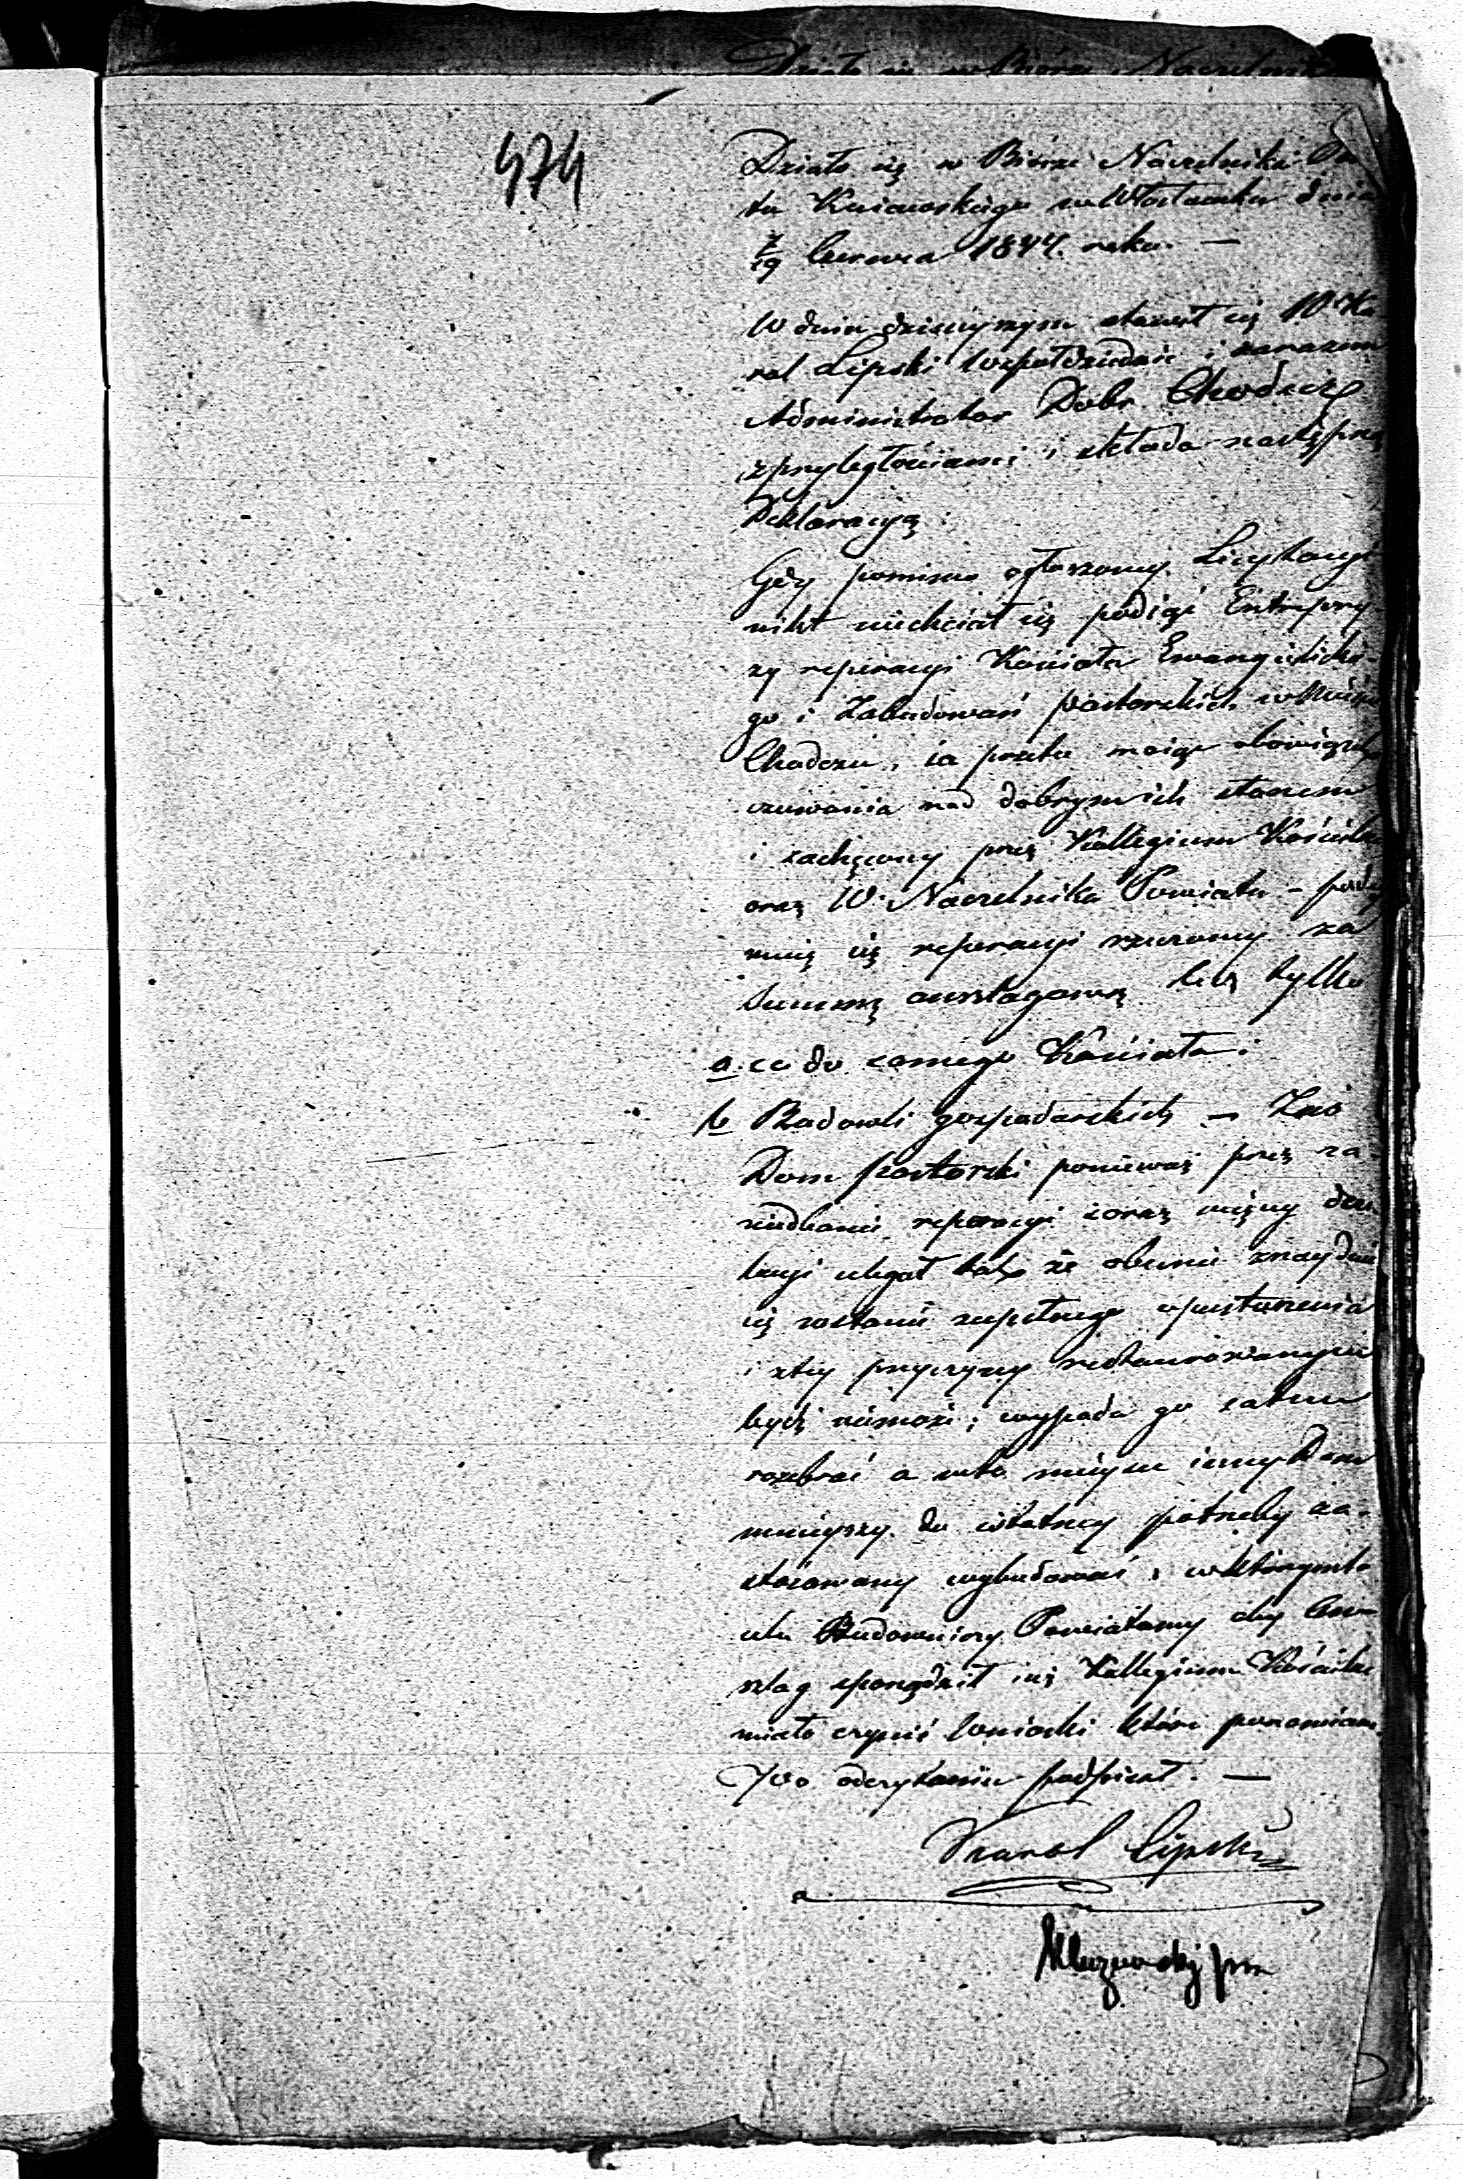 474
Działo się w Biórze Naczelnika Po
tu Kuiawskiego we Włocławku dnia
7/19 Czerwca 1844. roku. —
W dniu dzisieyszym stawił się W. Ka
rol Lipski Współdziedzic i zarazem
Administrator Dobr Chodcz
z przyległościami i składa następną
Deklaracyą:
Gdy pomimo ogłoszoney Licytacyi
nikt niechciał się podiąć Entrepry
zy reperacyi Kościoła Ewangielickie-
go i Zabudowań pastorskich w Mieście
Chodczu, ia przeto maiąc obowiązek
czuwania nad dobrym ich stanem
i zachęcony przez Kollegium Kościelne
oraz W. Naczelnika Powiatu – pode
muię się reperacyi rzeczoney za
Summę anszlagową lecz tylko
a. co do samego Kościoła i
b Budowli gospodarskich — Zaś
Dom pastorski ponieważ przez za-
niedbanie reperacyi coraz więcey deze
lacyi ulegał tak że obecnie znayduie
się w stanie zupełnego opustoszenia
i z tey przyczyny restaurowanym
bydź niemoże; wypada go zatem
rozebrać a w to mieysce inny Dom
mnieyszy do istotney potrzeby za-
stosowany wybudować, w którym to
celu Budowniczy Powiatowy aby An
szlag sporządził iuż Kollegium Kościelne
miało czynić wnioski które ponawiam
Po odczytaniu podpisał. —
Karol Lipski